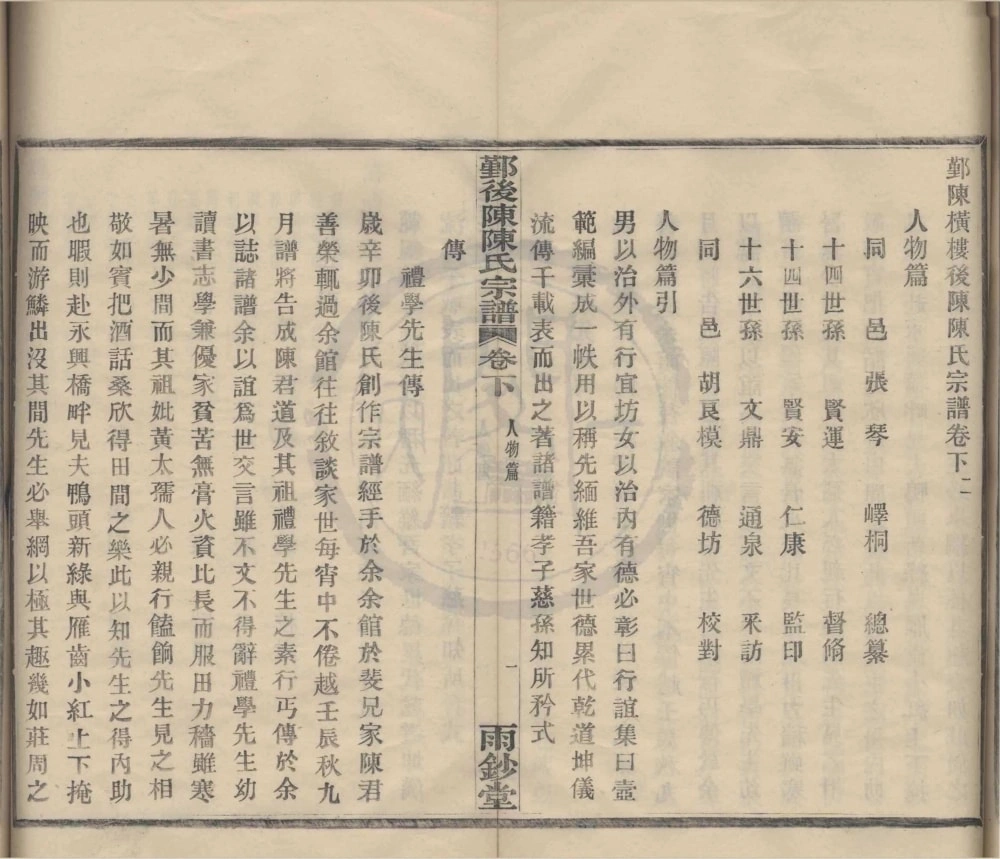 鄞陳橫樓後陳陳氏宗譜卷下二
人物篇
同邑張琴嶧桐總纂
十四世孫賢運督脩
十四世孫賢安仁康監印
十六世孫文鼎通泉采訪
同邑胡良模德坊校對
人物篇引
男以治外有行宜坊女以治內有德必彰曰行誼集曰壼
範編彙成一帙用以稱先緬維吾家世德累代乾道坤儀
流傳千載表而出之著諸譜籍孝子慈孫知所矜式
傳
禮學先生傳
歲辛卯後陳氏創作宗譜經手於余余館於斐兄家陳君
善榮輒過余館往往敘談家世每宵中不倦越壬辰秋九
月譜將告成陳君道及其祖禮學先生之素行丐傳於余
以誌諸譜余以誼為世交言雖不文不得辭禮學先生幼
讀書志學兼優家貧苦無膏火資比長而服田力穡雖寒
暑無少間而其祖妣黃太孺人必親行饁餉先生見之相
敬如賓把酒話桑欣得田間之樂此以知先生之得內助
也暇則赴永興橋畔見夫鴨頭新綠與雁齒小紅上下掩
映而游鱗出沒其間先生必舉網以極其趣幾如莊周之
鄞後陳陳氏宗譜
卷下
人物篇
一
雨鈔堂